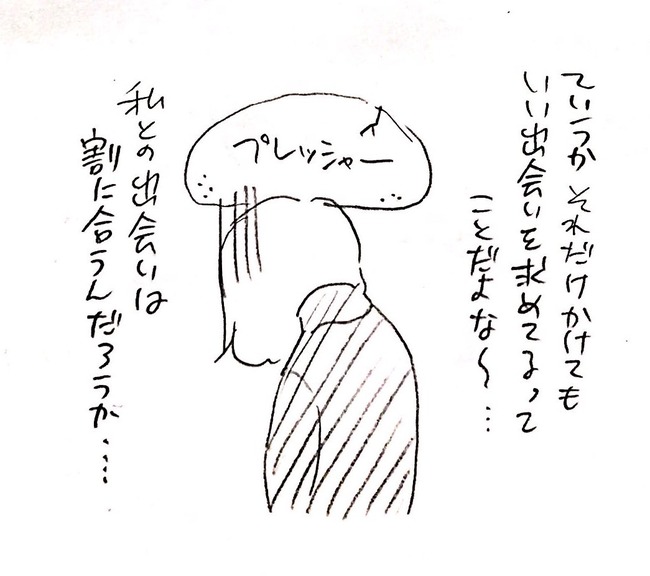 ていうか それだけかけても
いい出会いを求めてるって
ことだよな〜…
プレッシャー
私との出会いは
割に合うんだろうか……